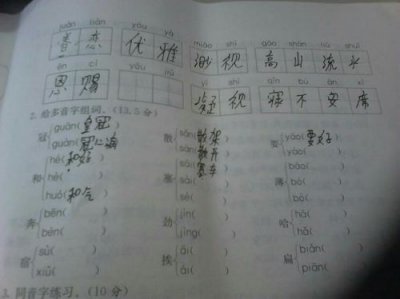 juàn liàn yōu yǎ
眷恋 优雅
miǎo shì gāo shān liú shuǐ
渺视 高山流水
ēn cì yōu
恩赐
shì qǐn bù ān xí
视 寝不安席
2. 给多音字组词。(13.5分)
冠 guān(皇冠) 散 sǎn(散架) 要 yāo(要好)
guàn( ) sàn(散开) yào( )
和 hé(和好) 塞 sài(赛车) 薄 báo( )
hè( ) sāi( ) bó( )
huó(和气) sè( ) bò( )
奔 bēn( ) 劲 jìn( ) 哈 hā( )
bèn( ) jìng( ) hǎ( )
宿 sù( ) 挨 āi( ) 扁 biǎn( )
xiǔ( ) ái( ) piān( )
3. 同音字练习。(10分)